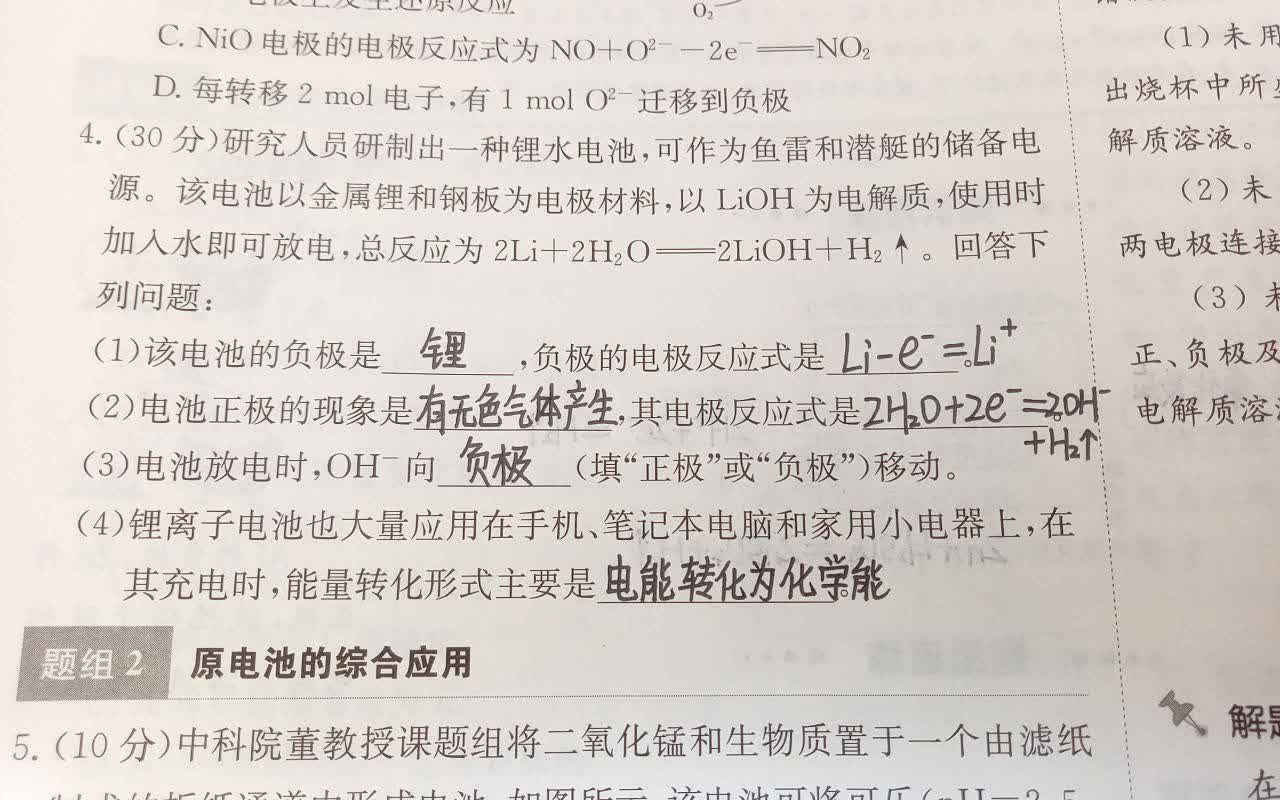 电极上发生还原反应
O₂
C. NiO 电极的电极反应式为 NO+O²⁻−2e⁻══NO₂
D. 每转移 2 mol 电子,有 1 mol O²⁻ 迁移到负极
4. (30 分)研究人员研制出一种锂水电池,可作为鱼雷和潜艇的储备电
源。该电池以金属锂和钢板为电极材料,以 LiOH 为电解质,使用时
加入水即可放电,总反应为 2Li+2H₂O══2LiOH+H₂↑。回答下
列问题:
(1)该电池的负极是 锂 ,负极的电极反应式是 Li-e⁻=Li⁺ 。
(2)电池正极的现象是 有无色气体产生,其电极反应式是 2H₂O+2e⁻=2OH⁻
+H₂↑
(3)电池放电时,OH⁻ 向 负极 (填“正极”或“负极”)移动。
(4)锂离子电池也大量应用在手机、笔记本电脑和家用小电器上,在
其充电时,能量转化形式主要是 电能转化为化学能 。
题组 2 原电池的综合应用
5. (10 分)中科院董教授课题组将二氧化锰和生物质置于一个由滤纸
(1) 未用
出烧杯中所
解质溶液。
(2) 未
两电极连接
(3) 未
正、负极及
电解质溶
解题
在